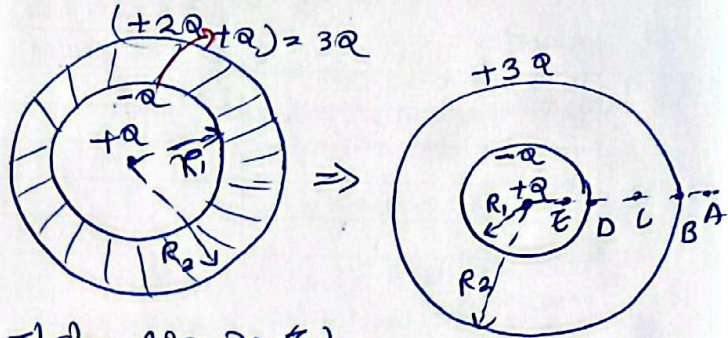 (+2Q +Q) = 3Q
-Q
+Q
R₁
R₂
⇒
+3Q
-Q
+Q
R₁
E D C B A
R₂